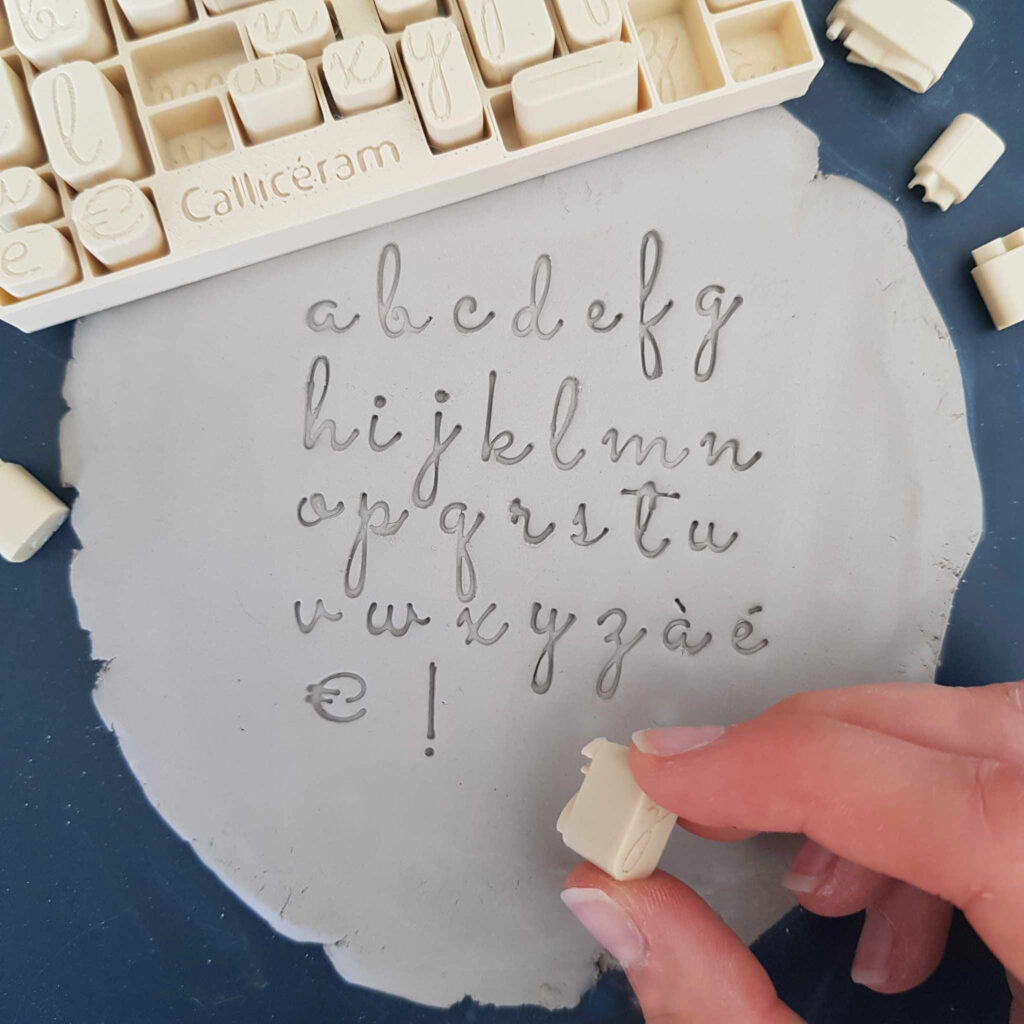 Callicéram
a b c d e f g
h i j k l m n
o p q r s t u
v w x y z à é
€ !